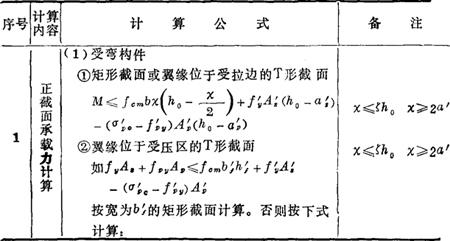 序号 计算内容 计算公式 备注
1 正截面承载力计算
(1)受弯构件
①矩形截面或翼缘位于受拉边的T形截面
M≤f_cm bx(h₀-x/2)+f'_y A'_s(h₀-a'_s) x≤ζh₀ x≥2a'
-(σ'_po-f'_py)A'_p(h₀-a'_p)
②翼缘位于受压区的T形截面 x≤ζh₀ x≥2a'
如f_y A_s+f_py A_p≤f_cm b'_f h'_f+f'_y A'_s
-(σ'_po-f'_py)A'_p
按宽为b'_f的矩形截面计算。否则按下式
计算: